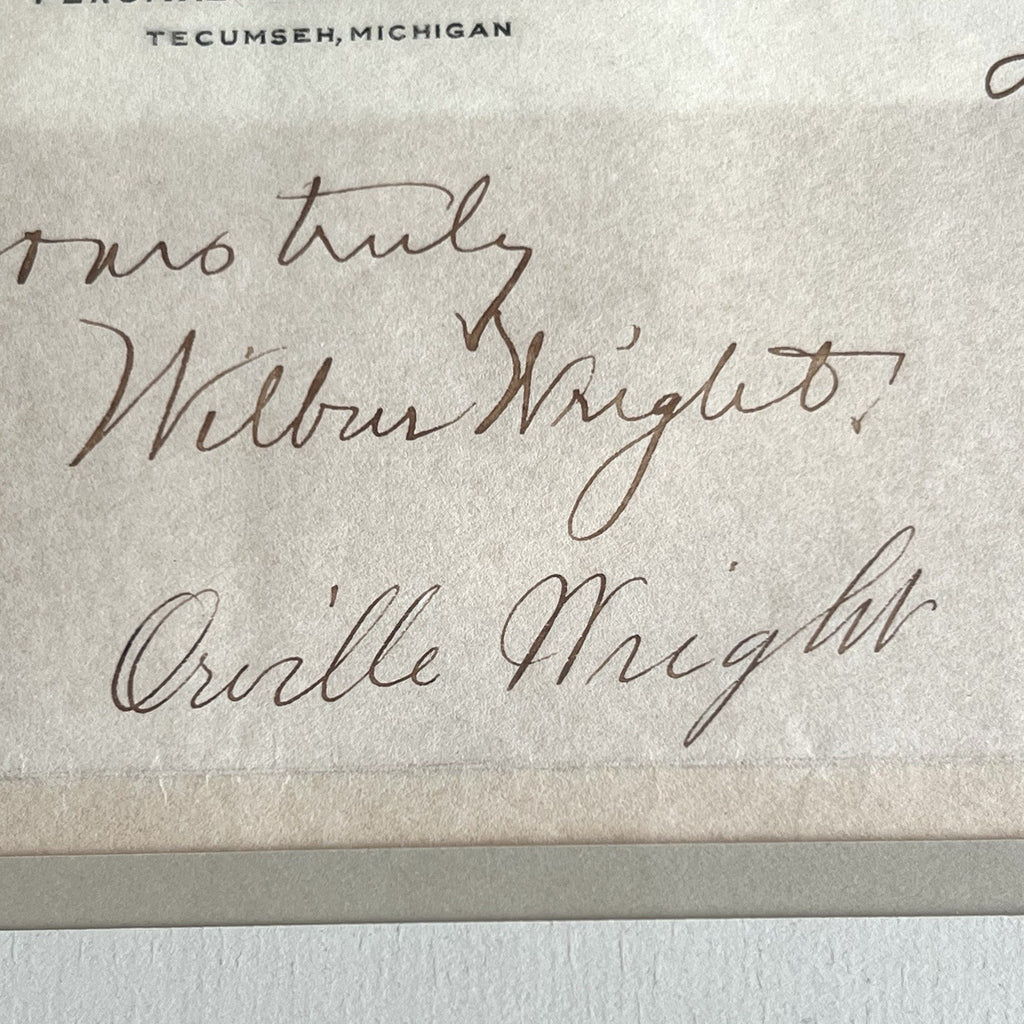 TECUMSEH, MICHIGAN
truly
Wilbur Wright.
Orville Wright